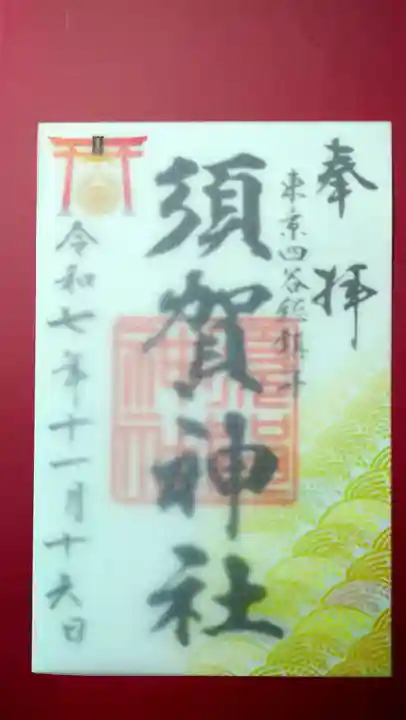 奉拝
東京四谷総鎮守
須賀神社
令和七年十一月十六日